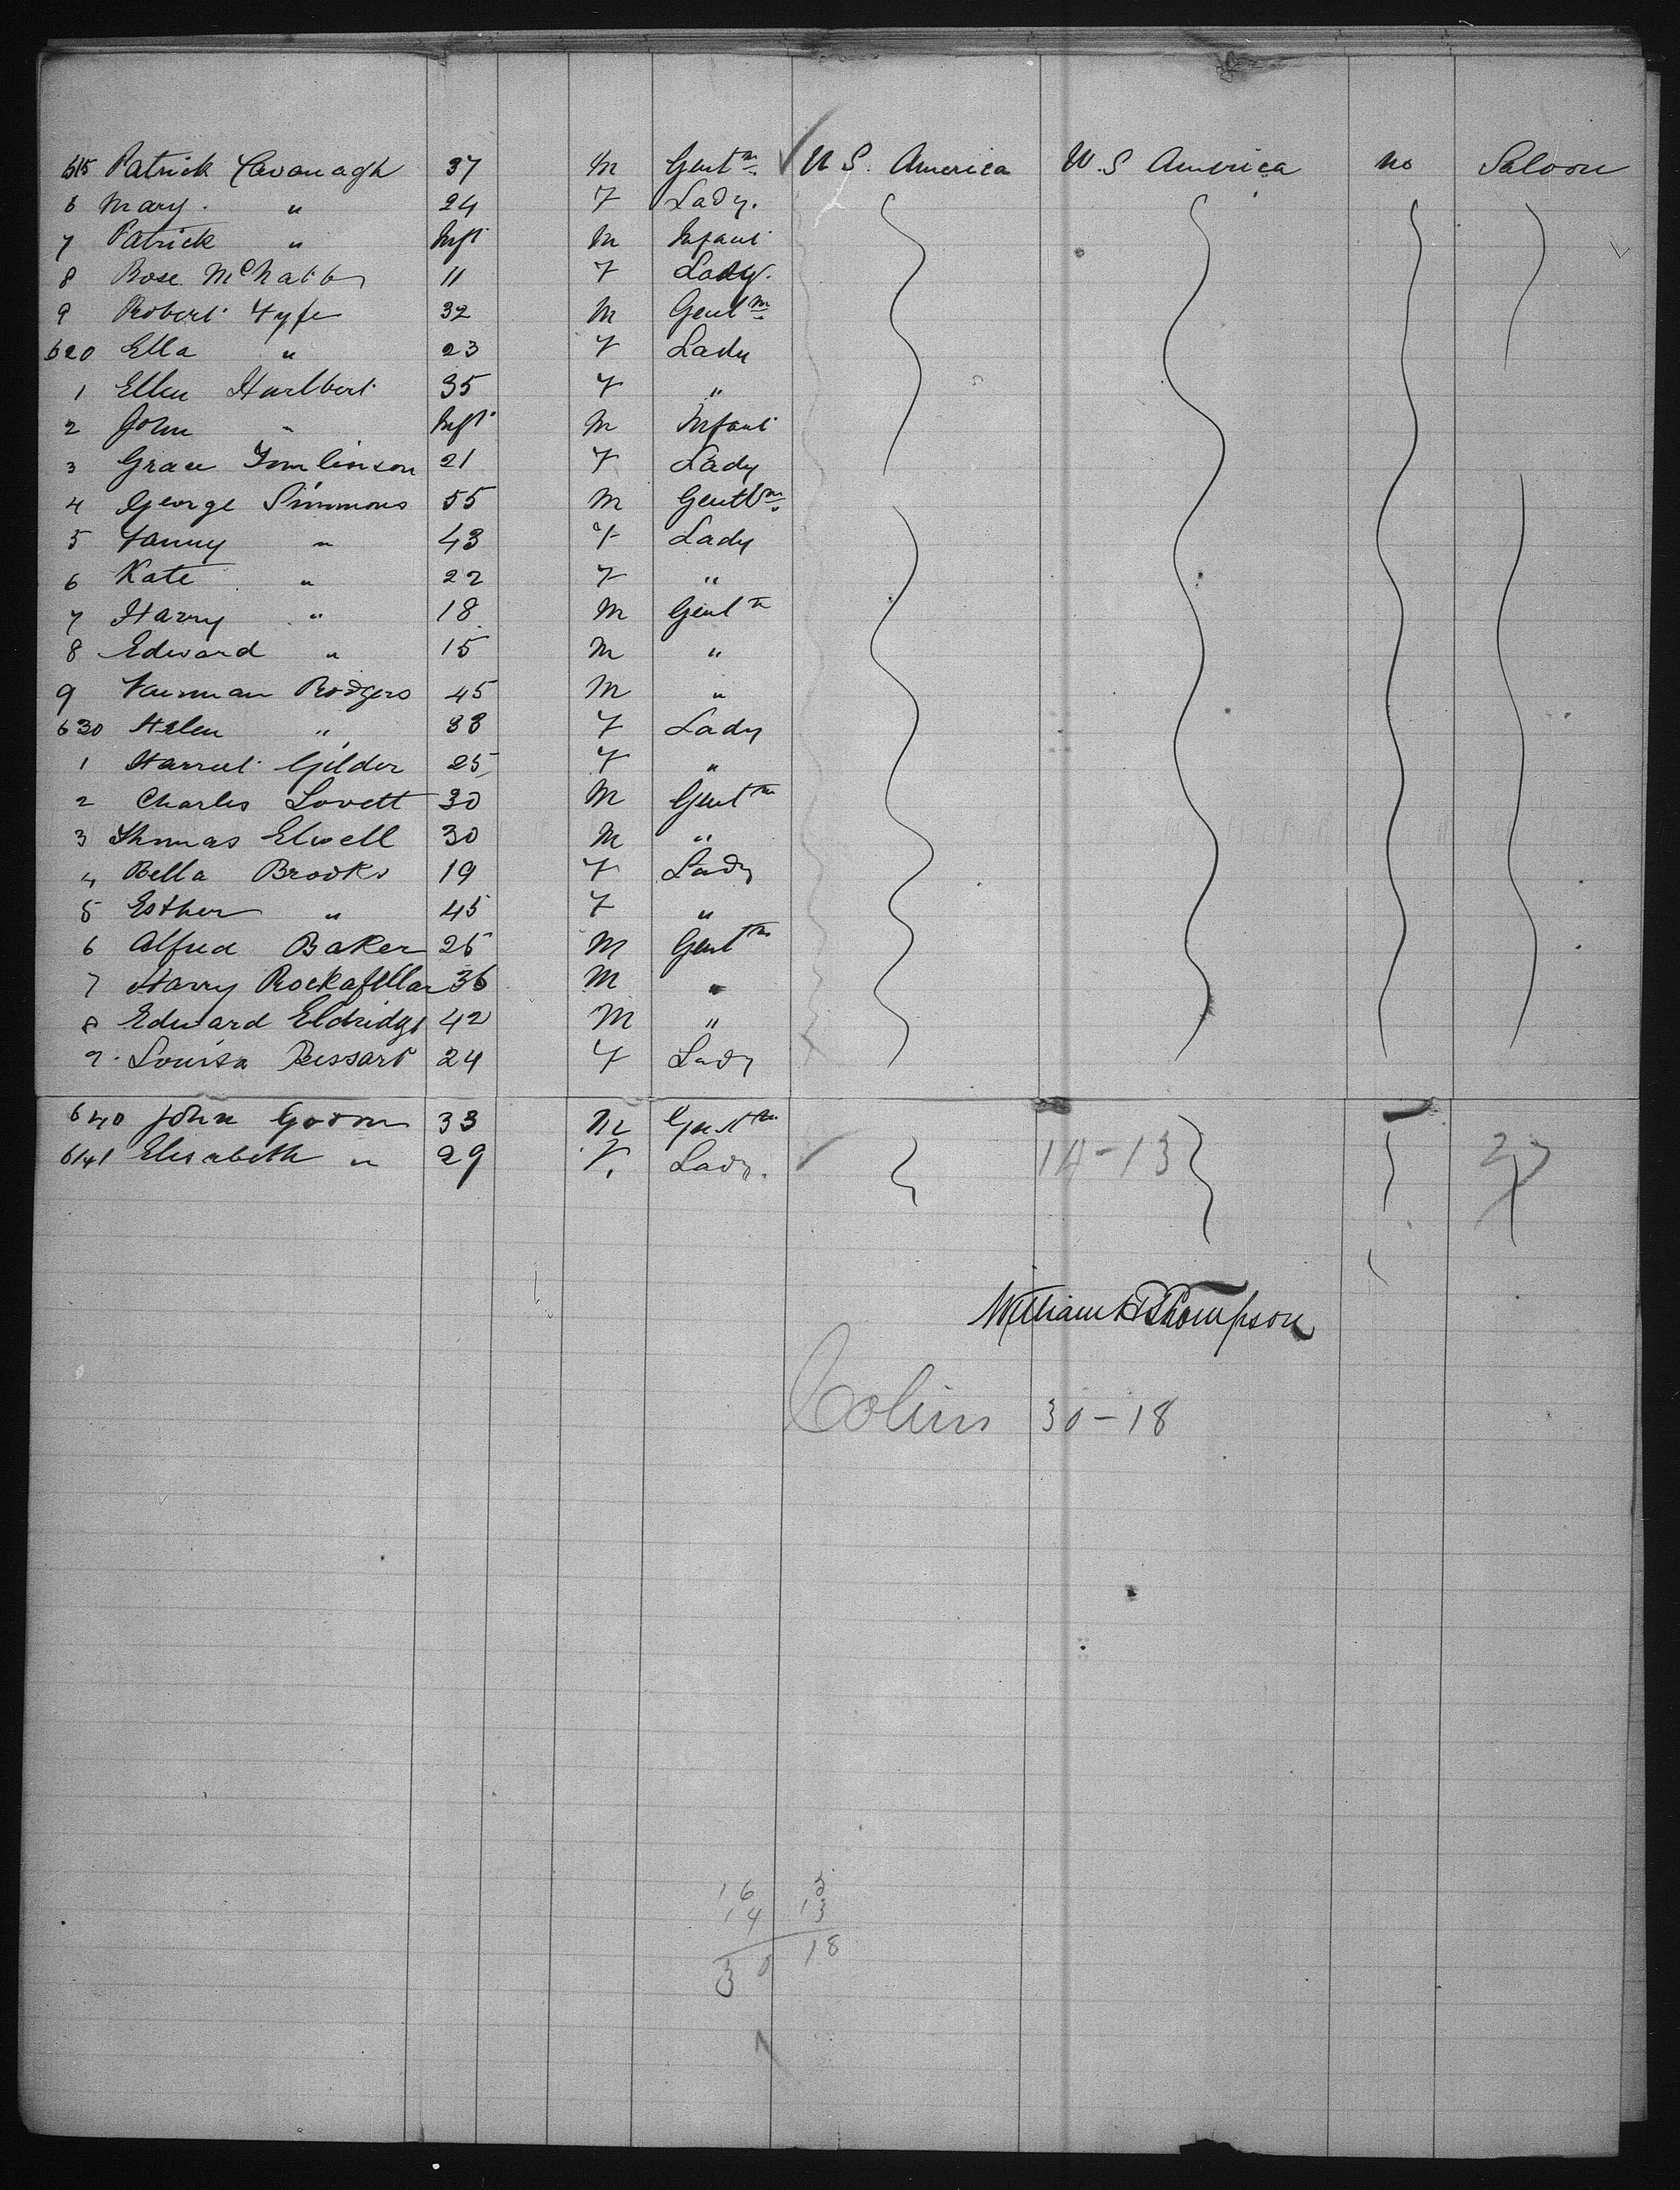 615 Patrick Cavanagh 37 M Gentm U S. America U.S America no Saloon
6 Mary. " 24 F Lady.
7 Patrick " Inft M Infant
8 Rose McNabb 11 F Lady.
9 Robert Fyfe 32 M Gentm
620 Ella " 23 F Lady
1 Ellen Hurlbert 35 F "
2 John " Inft M Infant
3 Grace Tomlinson 21 F Lady
4 George Simmons 55 M Gentlm
5 Fanny " 43 F Lady
6 Kate " 22 F "
7 Harry " 18 M Gentm
8 Edward " 15 M "
9 Rodgers 45 M "
630 Helen " 38 F Lady
1 Harriet Gilder 25 F "
2 Charles Lovett 30 M Gentm
3 Thomas Elwell 30 M "
4 Bella Brooks 19 F Lady
5 Esther " 45 F "
6 Alfred Baker 25 M Gentm
7 Harry Rockafellar 36 M "
8 Edward Eldridge 42 M "
9. Louisa 24 F Lady
640 John 33 M Gentm
641 Elisabeth " 29 F. Lady. 14-13 27
William Thompson
30-18
16 5
14 13
30 18